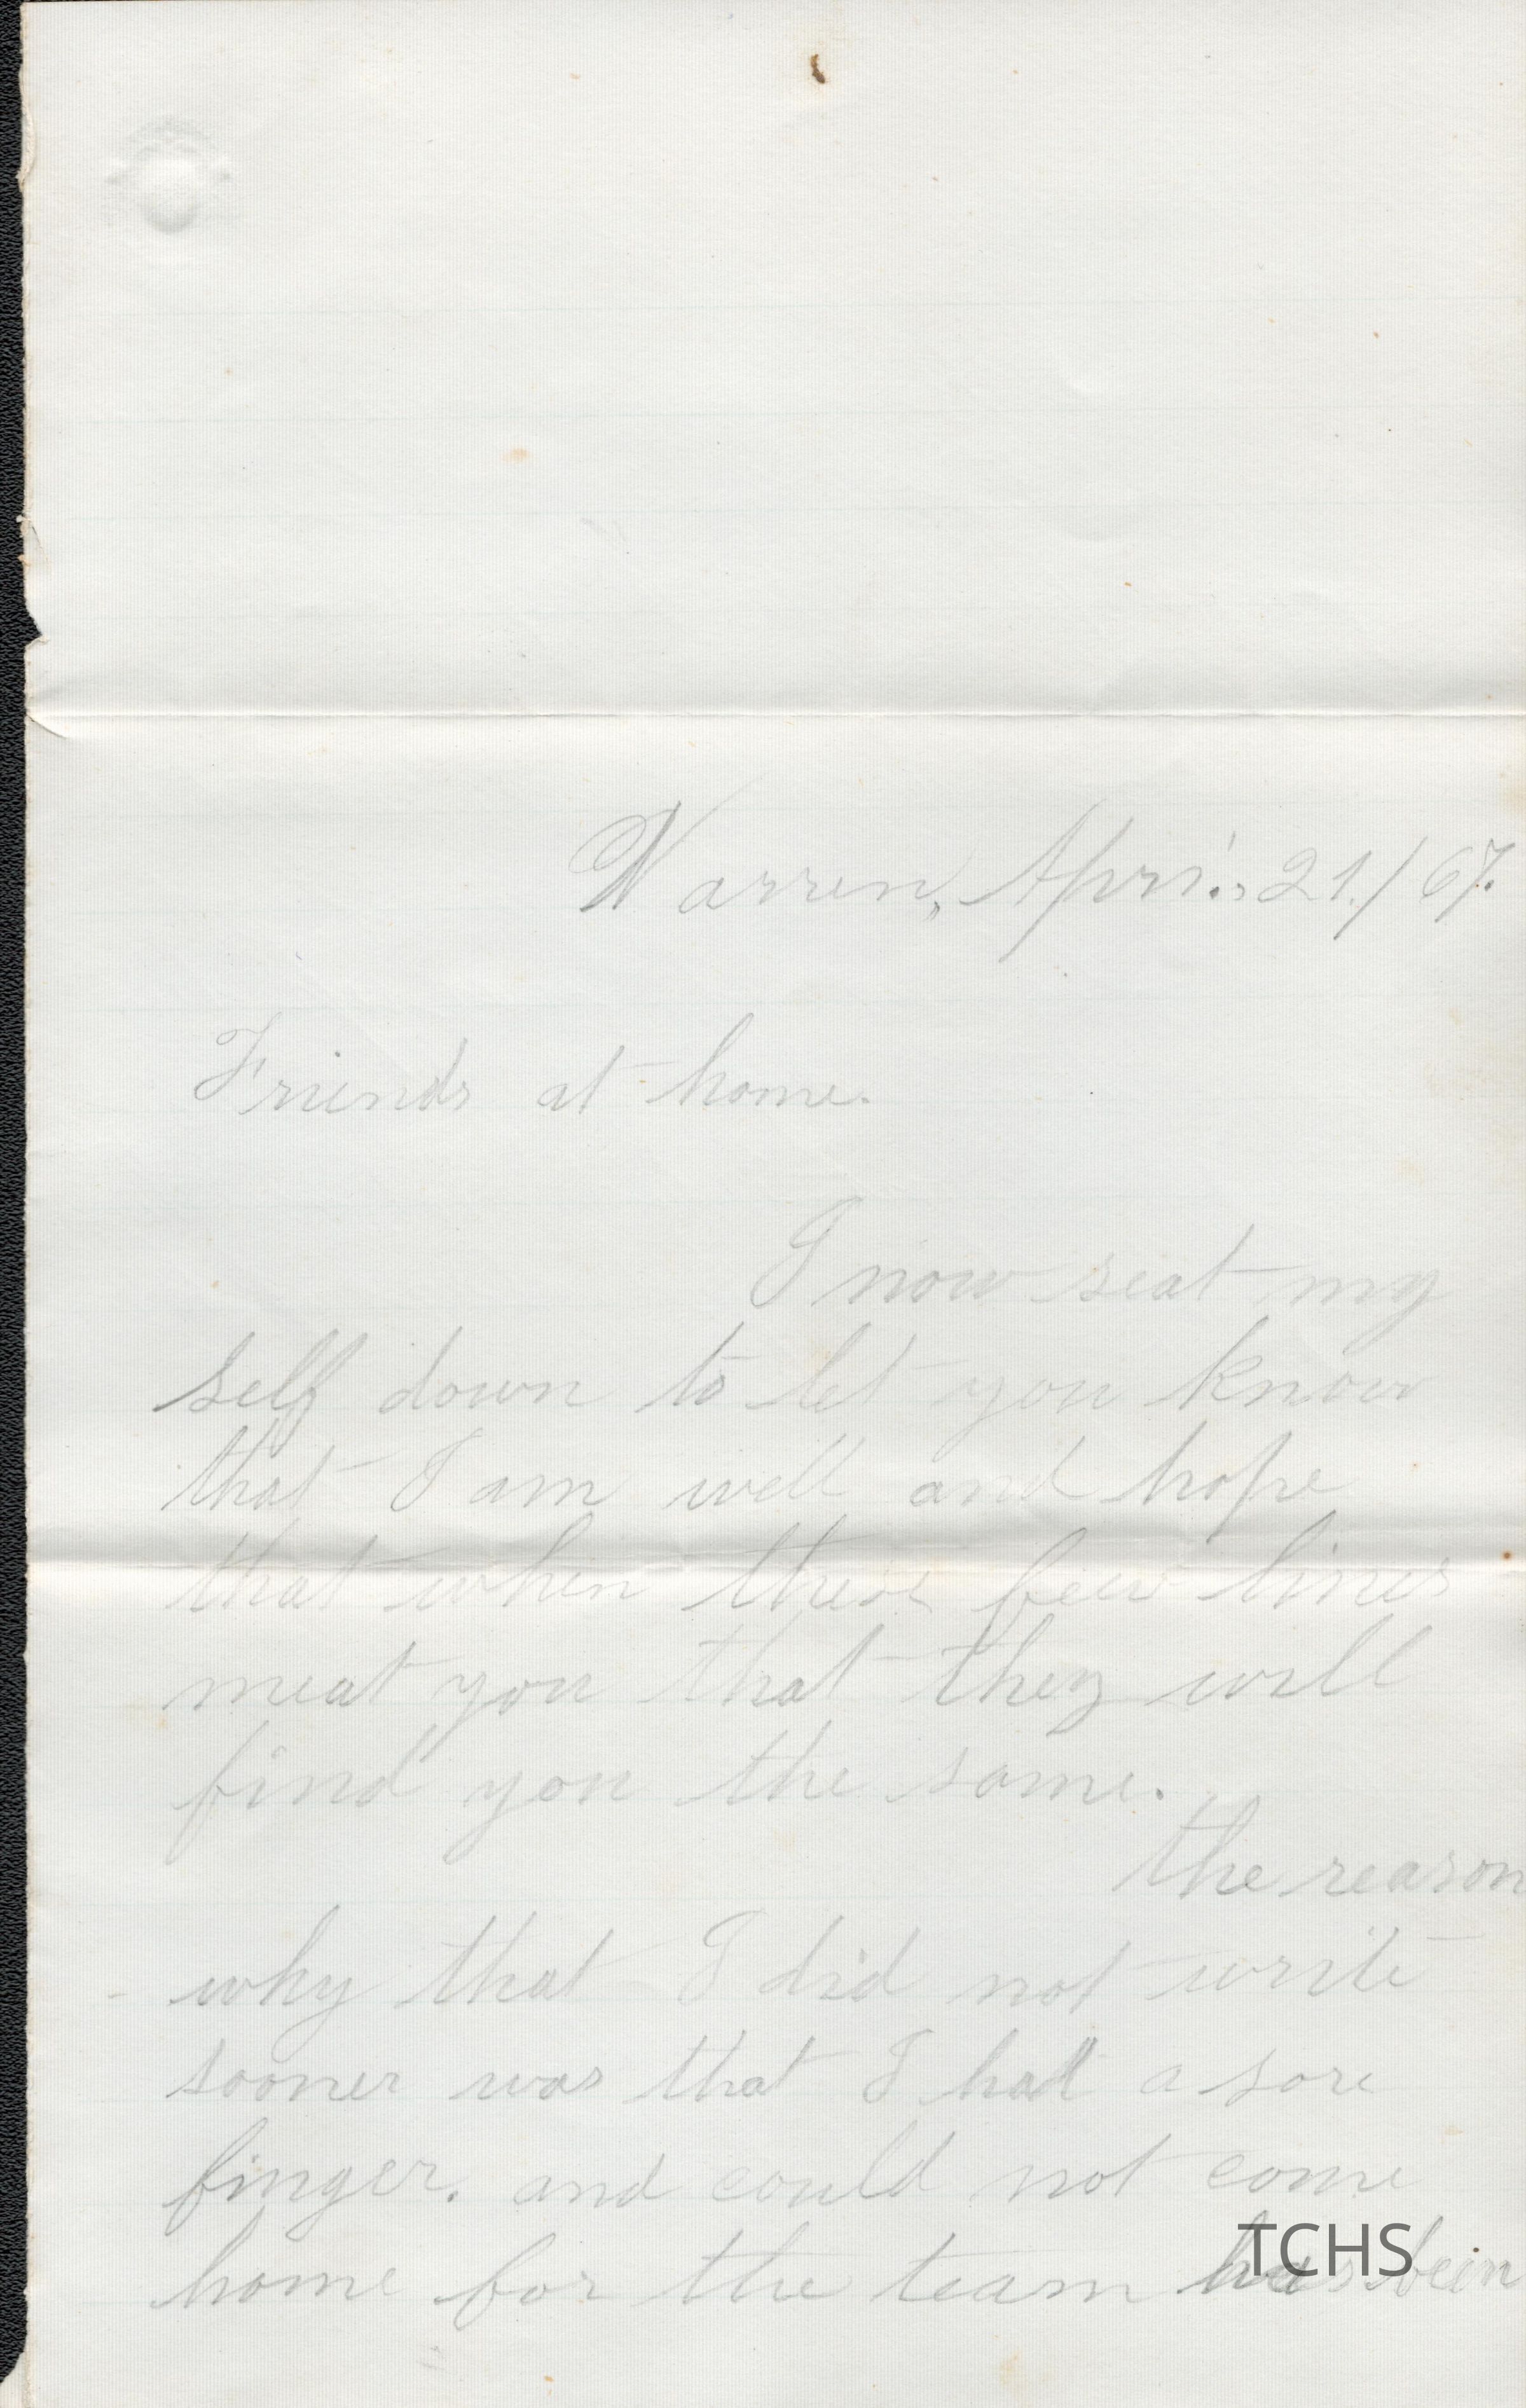 Warren, Apri., 21./67.
Friends at home.
I now seat my
self down to let you know
that I am well and hope
that when these few lines
meat you that they will
find you the same.
the reason
why that I did not write
sooner was that I had a sore
finger. and could not come
home for the team has bein
TCHS